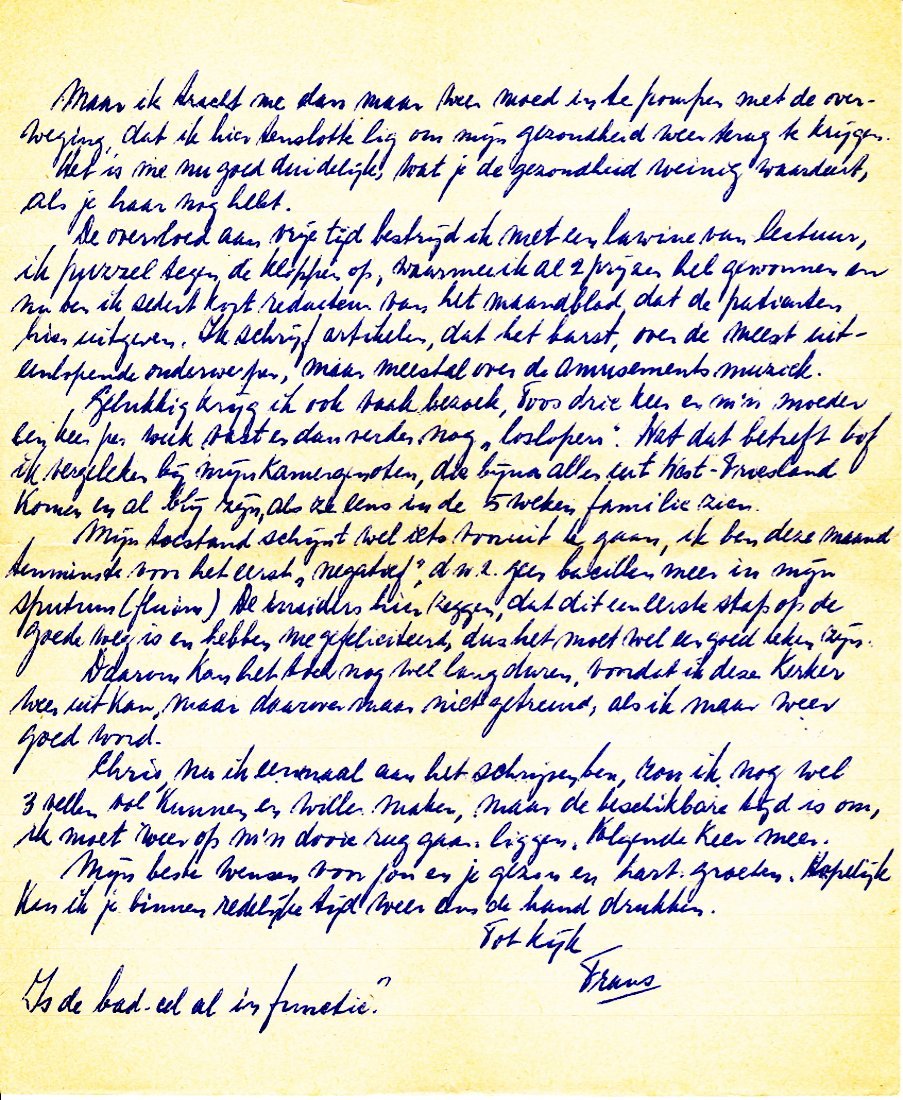 Maar ik tracht me dan maar weer moed in te pompen met de over-
weging, dat ik hier tenslotte lig om mijn gezondheid weer terug te krijgen.
Het is me nu goed duidelijk, wat je de gezondheid weinig waardeert,
als je haar nog hebt.
De overvloed aan vrije tijd bestrijd ik met een lawine van lectuur,
ik puzzel tegen de kloppen op, waarmee ik al 2 prijzen heb gewonnen en
nu ben ik sedert kort redacteur van het maandblad, dat de patienten
hier uitgeven. Ik schrijf artikelen, dat het barst, over de meest uit-
eenlopende onderwerpen, maar meestal over de amusementsmuziek.
Gelukkig krijg ik ook vaak bezoek, Toos drie keer en m'n moeder
een keer per week vast en dan verder nog „loslopers". Wat dat betreft bof
ik vergeleken bij mijn kamergenoten, die bijna allen uit West-Friesland
komen en al blij zijn, als ze eens in de 5 weken familie zien.
Mijn toestand schijnt wel iets vooruit te gaan, ik ben deze maand
tenminste voor het eerst „negatief", d.w.z. geen bacillen meer in mijn
sputum (fluim) De insiders hier zeggen, dat dit een eerste stap op de
goede weg is en hebben me gefeliciteerd, dus het moet wel een goed teken zijn.
Daarom kan het toch nog wel lang duren, voordat ik deze kerker
weer uit kan, maar daarover maar niet getreurd, als ik maar weer
goed word.
Chris, nu ik eenmaal aan het schrijven ben, zou ik nog wel
3 vellen vol kunnen en willen maken, maar de beschikbare tijd is om,
ik moet weer op m'n dooie rug gaan liggen. Volgende keer meer.
Mijn beste wensen voor jou en je gezin en hart. groeten. Hopelijk
kan ik je binnen redelijke tijd weer eens de hand drukken.
Tot kijk
Frans
Is de bad-cel al in functie?